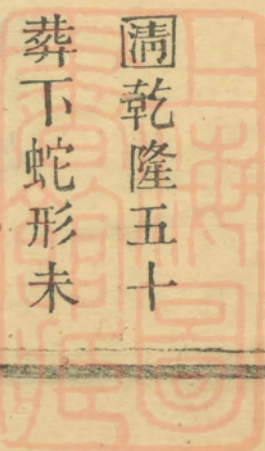 清乾隆五十
葬下蛇形未